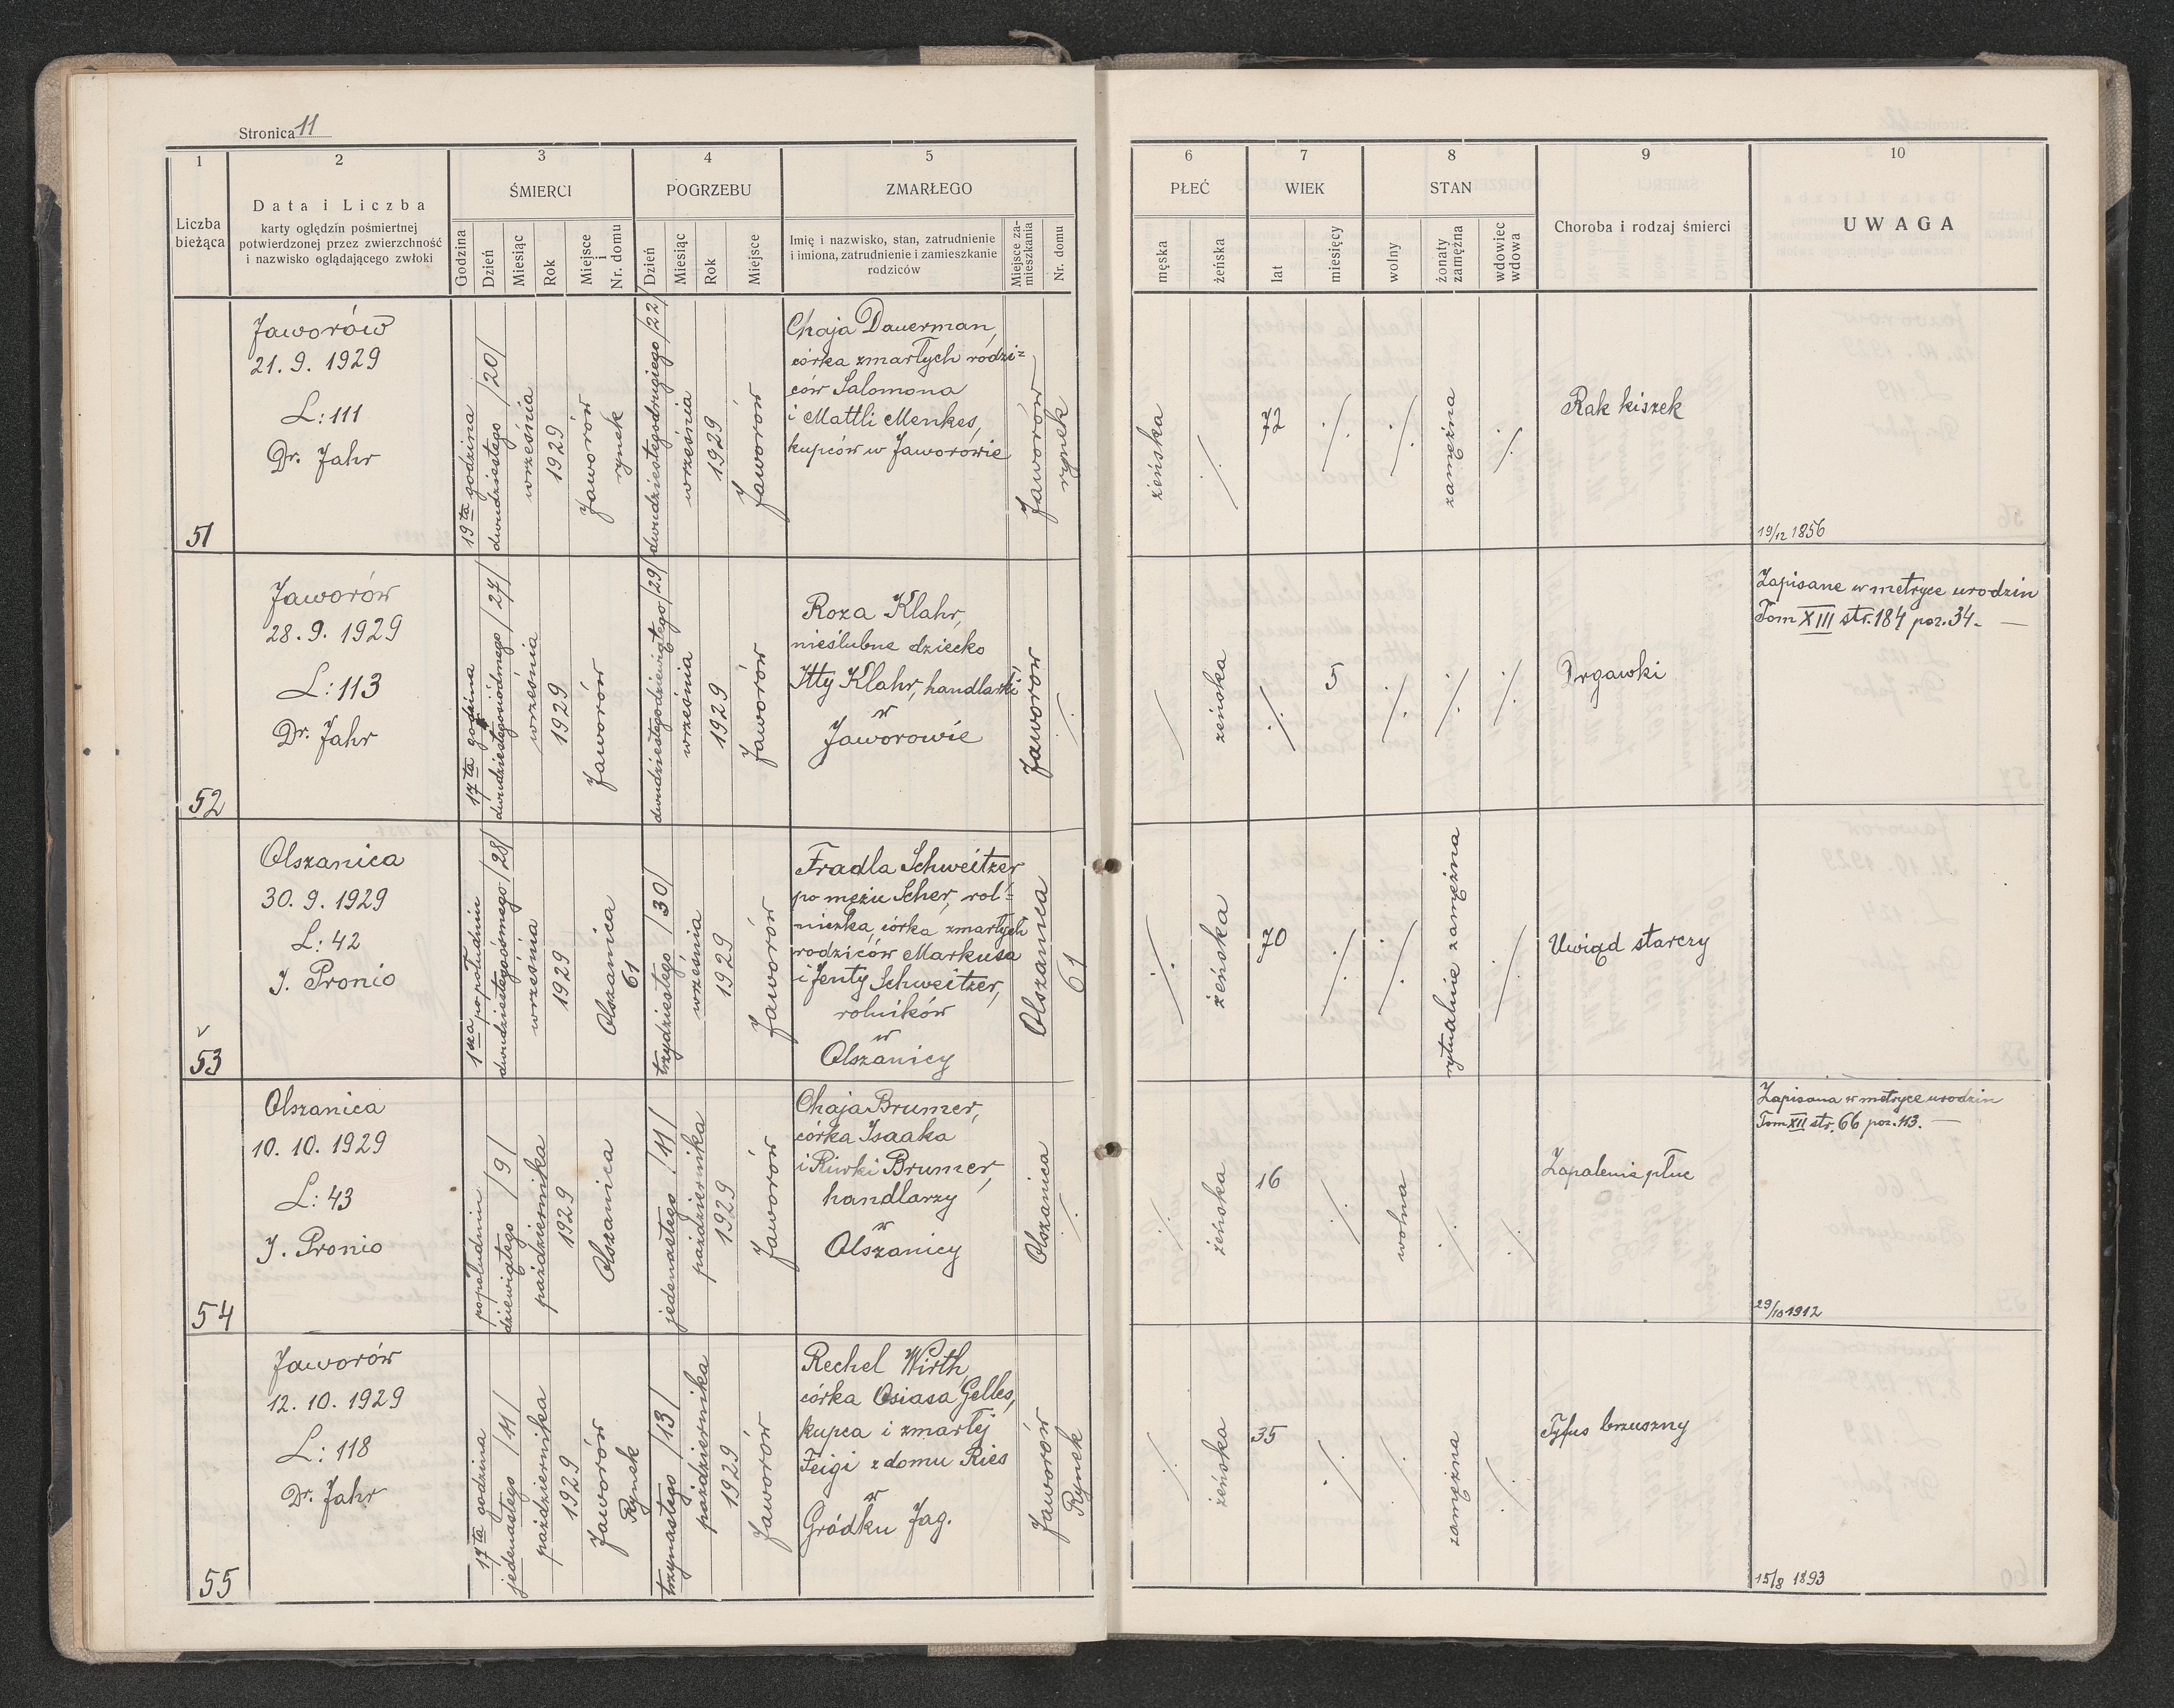 Stronica 11
1
2
3
4
5
6
7
8
9
10
Liczba
bieżąca
Data i Liczba
karty oględzin pośmiertnej
potwierdzonej przez zwierzchność
i nazwisko oglądającego zwłoki
ŚMIERCI
Godzina
Dzień
Miesiąc
Rok
Miejsce
i
Nr. domu
POGRZEBU
Dzień
Miesiąc
Rok
Miejsce
ZMARŁEGO
Imię i nazwisko, stan, zatrudnienie
i imiona, zatrudnienie i zamieszkanie
rodziców
Miejsce za-
mieszkania
Nr. domu
PŁEĆ
męska
żeńska
WIEK
lat
miesięcy
STAN
wolny
żonaty
zamężna
wdowiec
wdowa
Choroba i rodzaj śmierci
UWAGA
51
Jaworów
21. 9. 1929
L: 111
Dr. Jahr
19ta godzina
dwudziestego /20/
września
1929
Jaworów
rynek
dwudziestegodrugiego /22/
września
1929
Jaworów
Chaja Dauerman,
córka zmarłych rodzi=
ców Salomona
i Mattli Menkes,
kupców w Jaworowie
Jaworów
rynek
żeńska
72
zamężna
Rak kiszek
19/12 1856
52
Jaworów
28. 9. 1929
L: 113
Dr. Jahr
17ta godzina
dwudziestegosiódmego /27/
września
1929
Jaworów
dwudziestegodziewiątego /29/
września
1929
Jaworów
Roza Klahr,
nieślubne dziecko
Itty Klahr, handlarki
w
Jaworowie
Jaworów
żeńska
5
Drgawki
Zapisane w metryce urodzin
Tom XIII str. 184 poz. 34. —
53
Olszanica
30. 9. 1929
L: 42
J. Pronio
1sza popołudniu
dwudziestegoósmego /28/
września
1929
Olszanica
61
trzydziestego /30/
września
1929
Jaworów
Fradla Schweitzer
po mężu Scher, rol=
niczka, córka zmarłych
rodziców Markusa
i Jenty Schweitzer,
rolników
w
Olszanicy
Olszanica
61
żeńska
70
rytualnie zamężna
Uwiąd starczy
54
Olszanica
10. 10. 1929
L: 43
J. Pronio
popołudniu
dziewiątego /9/
października
1929
Olszanica
jedenastego /11/
października
1929
Jaworów
Chaja Brumer,
córka Isaaka
i Riwki Brumer,
handlarzy
w
Olszanicy
Olszanica
żeńska
16
wolna
Zapalenie płuc
Zapisana w metryce urodzin
Tom XII str. 66 poz. 113. —
29/10 1912
55
Jaworów
12. 10. 1929
L: 118
Dr. Jahr
17ta godzina
jedenastego /11/
października
1929
Jaworów
Rynek
trzynastego /13/
października
1929
Jaworów
Rechel Wirth
córka Osiasa Gelles,
kupca i zmarłej
Feigi z domu Ries
w
Gródku Jag.
Jaworów
Rynek
żeńska
35
zamężna
Tyfus brzuszny
15/8 1893